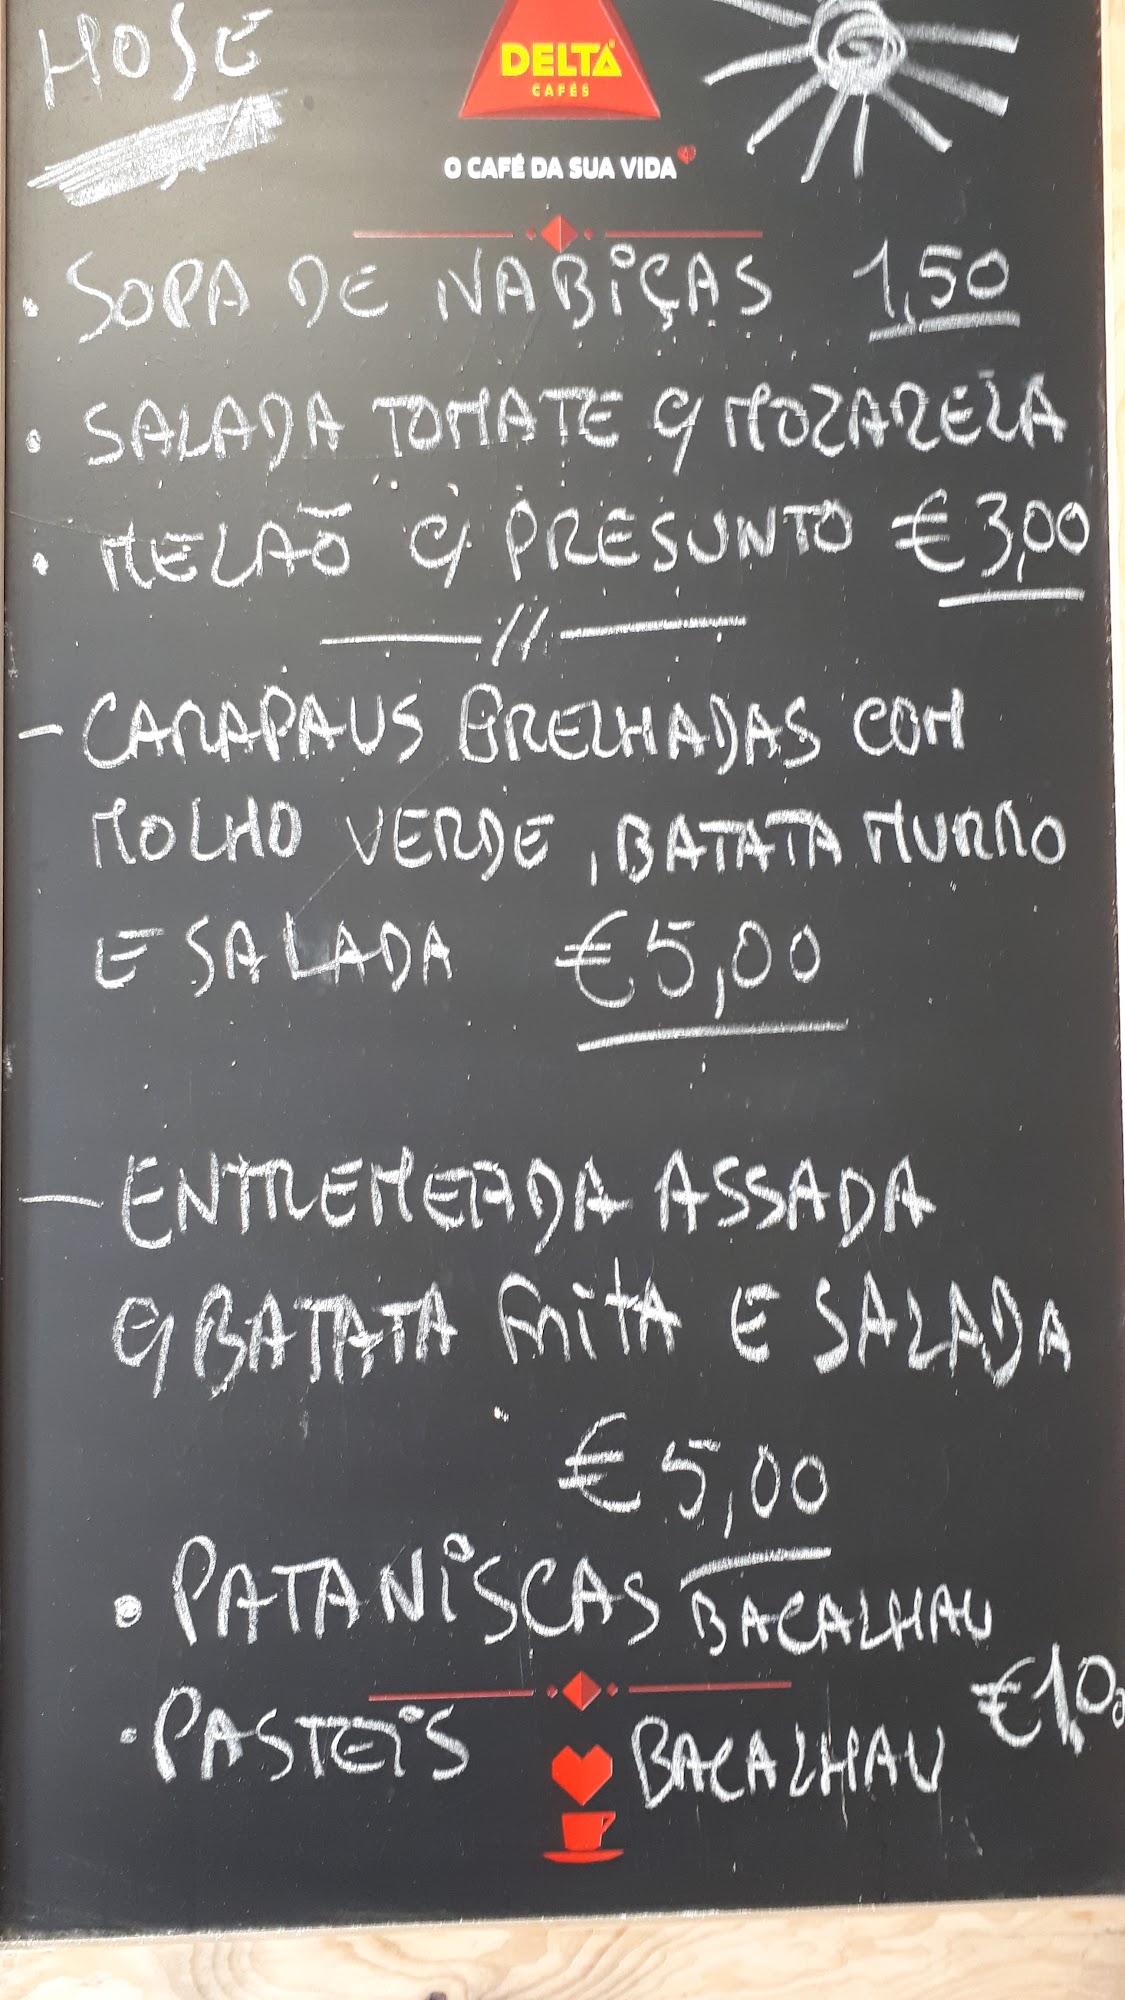 HOJE
DELTA
CAFÉS
O CAFÉ DA SUA VIDA
• SOPA DE NABIÇAS 1,50
• SALADA TOMATE C/ MOZARELA
• MELÃO C/ PRESUNTO €3,00
— // —
- CARAPAUS GRELHADAS COM
MOLHO VERDE, BATATA MURRO
E SALADA €5,00
- ENTREMEADA ASSADA
C/ BATATA FRITA E SALADA
€5,00
• PATANISCAS BACALHAU
€1,00
• PASTEIS BACALHAU